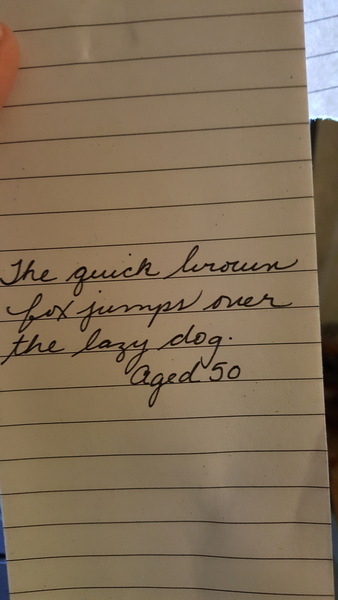 The quick brown
fox jumps over
the lazy dog.
Aged 50